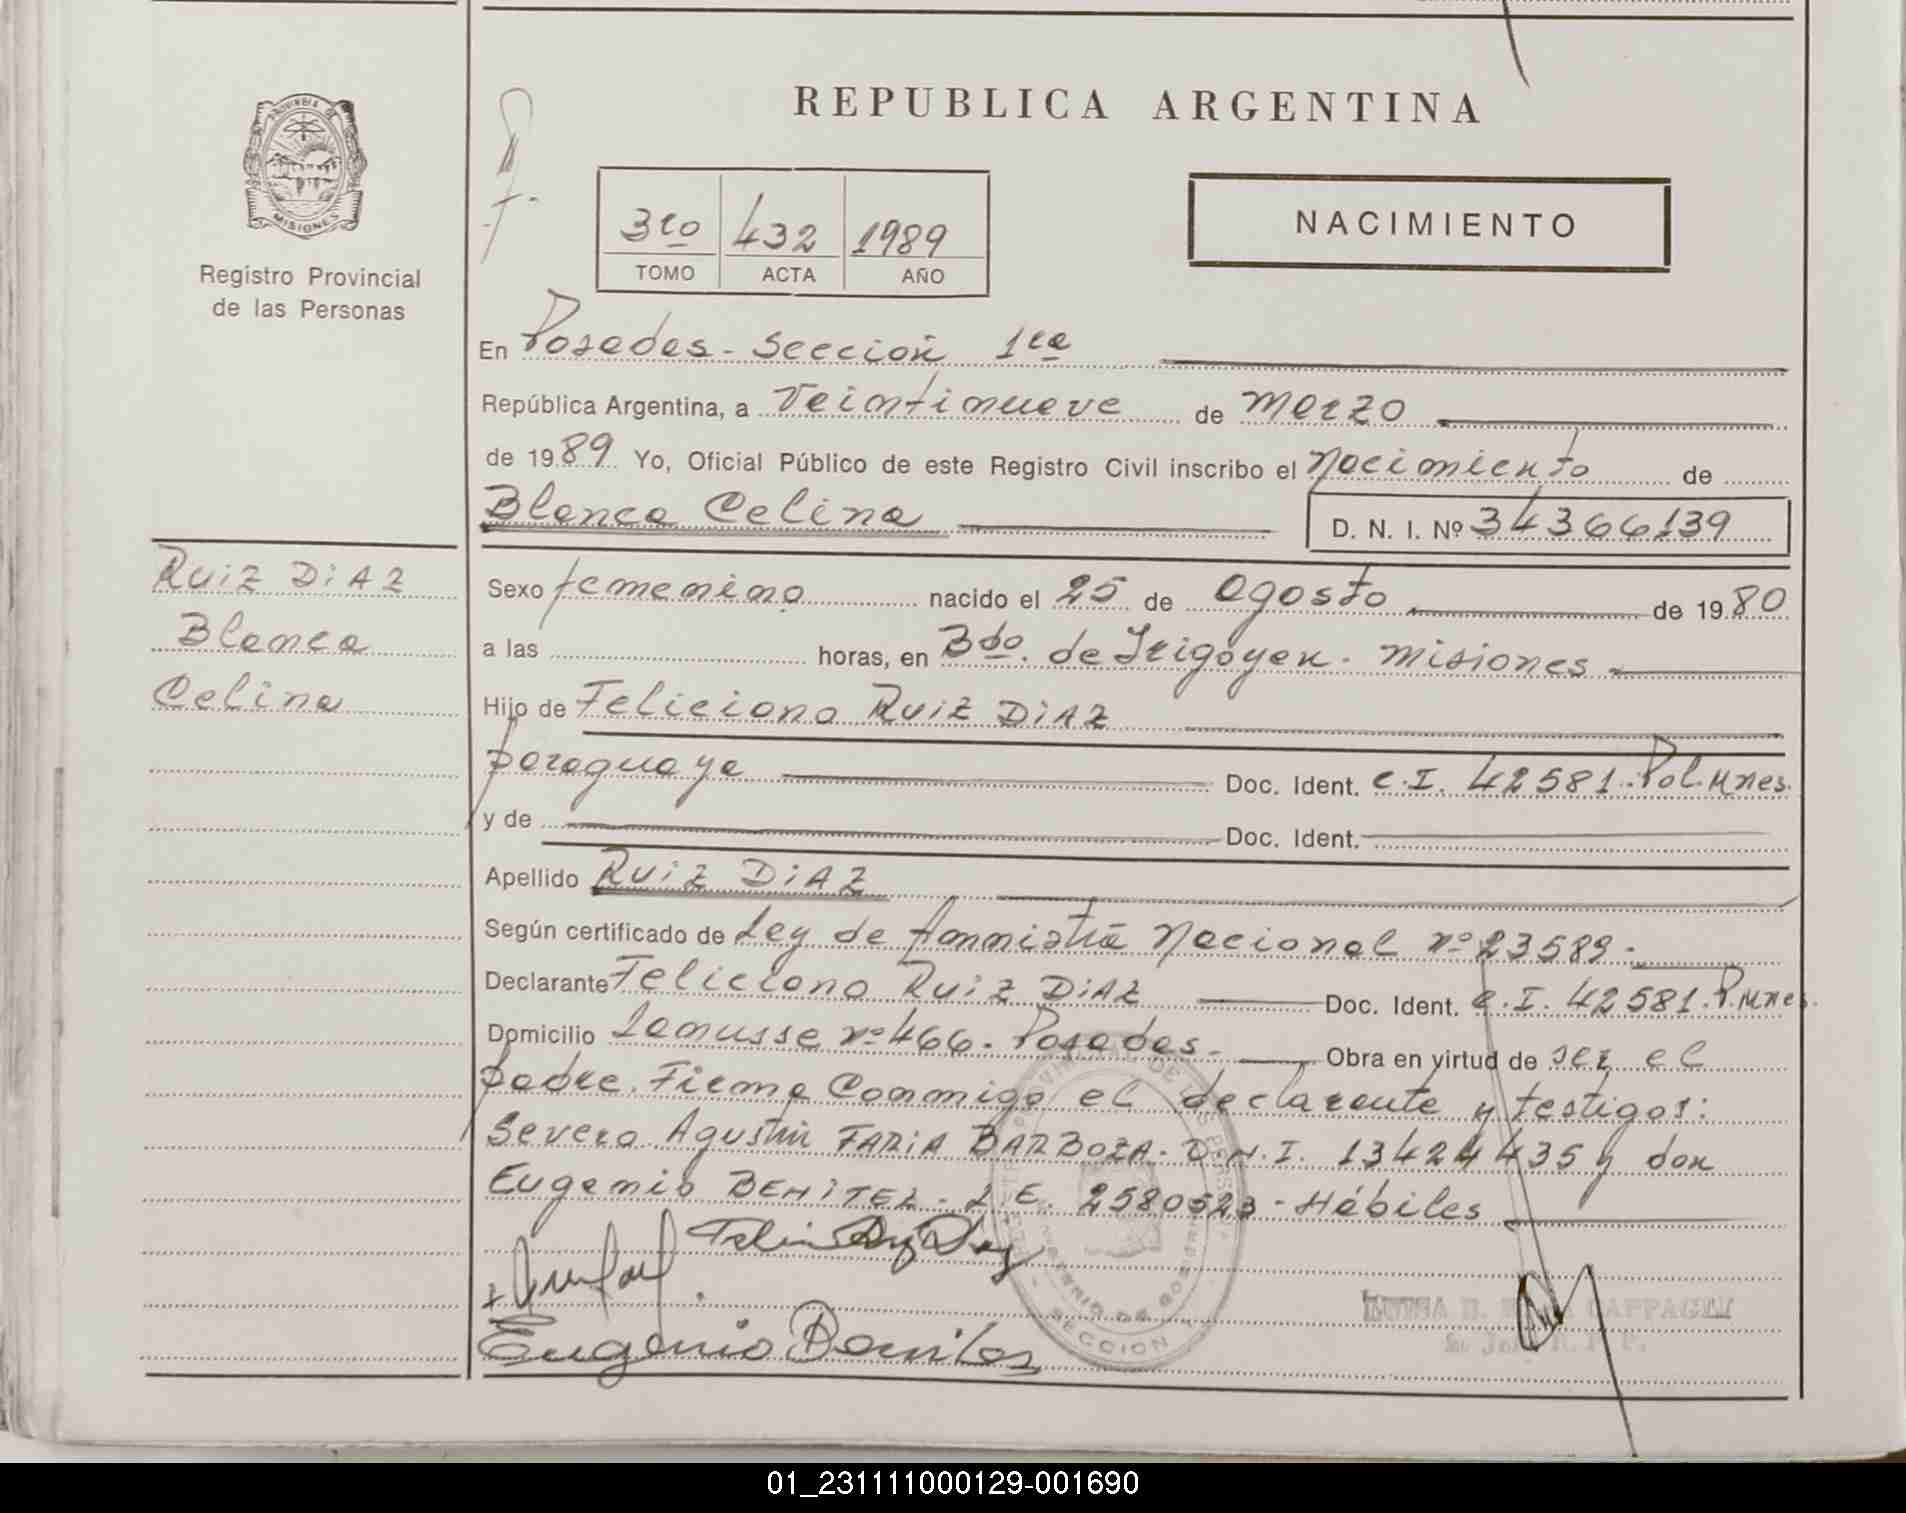 REPUBLICA ARGENTINA
PROVINCIA DE
MISIONES
Registro Provincial
de las Personas
3ro 432 1989
TOMO ACTA AÑO
NACIMIENTO
En Posadas - Sección 1ra
República Argentina, a Veintinueve de Marzo
de 1989 Yo, Oficial Público de este Registro Civil inscribo el Nacimiento de
Blanca Celina D. N. I. Nº 34366139
RUIZ DIAZ
Blanca
Celina
Sexo femenino nacido el 25 de Agosto de 1980
a las horas, en Bdo. de Irigoyen. Misiones
Hijo de Feliciano RUIZ DIAZ
paraguaya Doc. Ident. C.I. 42581. Pol. Mnes.
y de Doc. Ident.
Apellido RUIZ DIAZ
Según certificado de Ley de Amnistía Nacional nº 23589.
Declarante Feliciano RUIZ DIAZ Doc. Ident. C.I. 42581. P. Mnes.
Domicilio Lamusse nº 466. Posadas - Obra en virtud de ser el
padre. Firma Conmigo el declarante y testigos:
Severo Agustín FARIA BARBOZA. D.N.I. 13424435 y don
Eugenio BENITEZ - L E. 2580523 - Hábiles
Eugenio Benites
SECCION
01_231111000129-001690